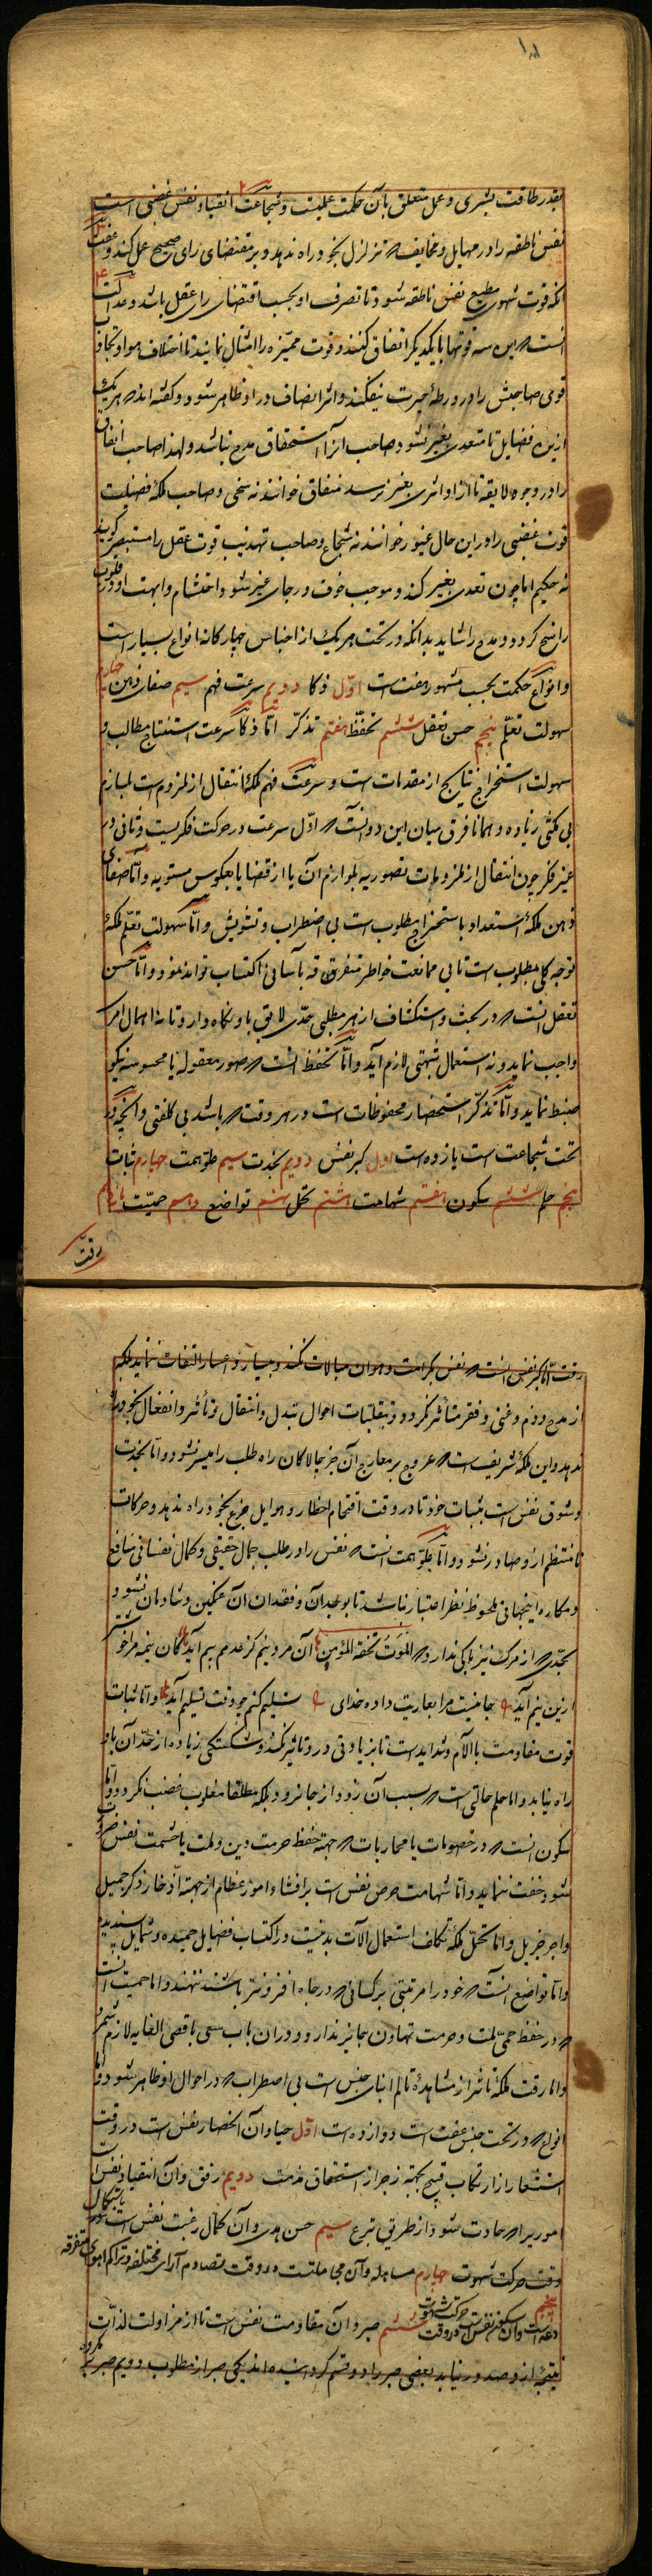 بقدر طاقت بشری و عمل متعلق بآن حکمت عملیست و شجاعت انقیاد نفس غضبی است
نفس ناطقه را در مهایل و مخایف که تزلزل بخود راه ندهد و بر مقتضای رای صحیح عمل کند و عفت
آنکه قوت شهوی مطیع نفس ناطقه شود تا تصرف او بحسب اقتضای رای عقل باشد و عدالت
آنست که این سه قوتها با یکدیگر اتفاق کنند و قوت ممیزه را امتثال نمایند تا اختلاف هوا و تجاذب
قوی صاحبش را در ورطهٔ حیرت نیفکند و اثر انصاف در او ظاهر شود و گفته اند که هر یک
ازین فضایل تا متعدی بغیر نشود صاحب آنرا استحقاق مدح نباشد و لهذا صاحب انفاق
را در وجوه لایقه تا ازو اثری بغیر نرسد منفاق خوانند نه سخی و صاحب ملکهٔ فضیلت
قوت غضبی را درین حال غیور خوانند نه شجاع و صاحب تهذیب قوت عقل را مستبصر گویند
نه حکیم اما چون تعدی بغیر کند و موجب خوف و رجای غیر شود احتشام و ابهت او در قلوب
راسخ گردد و مدح را شاید بدانکه در تحت هر یک از اجناس چهارکانه انواع بسیار است
و انواع حکمت بحسب مشهور هفت است اول ذکا دویم سرعت فهم سیم صفای ذهن چهارم
سهولت تعلم پنجم حسن تعقل ششم تحفظ هفتم تذکر اما ذکا سرعت استنتاج مطالب و
سهولت استخراج نتایج از مقدمات است و سرعت فهم ملکهٔ انتقال از ملزوم است بلازم
بی مکثی زیاده و همانا فرق میان این دو آنست که اول سرعت در حرکت فکریست و ثانی در
غیر فکر چون انتقال از ملزومات تصوریه بلوازم آن یا از قضایا بعکوس مستویه و اما صفای
ذهن ملکهٔ استعداد باستخراج مطلوب است بی اضطراب و تشویش و اما سهولت تعلم ملکهٔ
توجه کلی مطلوب است تا بی ممانعت خواطر متفرقه بآسانی اکتساب تواند نمود و اما حسن
تعقل آنست که در بحث و استکشاف از هر مطلبی حدی لایق باو نگاه دارد تا نه اهمال امر
واجب نماید و نه استعمال شبهتی لازم آید و اما تحفظ آنست که صور معقوله یا محسوسه نیکو
ضبط نماید و اما تذکر استحضار محفوظات است در هر وقت که باشد بی کلفتی و آنچه در
تحت شجاعت است یازده است اول کبر نفس دویم نجدت سیم علو همت چهارم ثبات
پنجم حلم ششم سکون هفتم شهامت هشتم تحمل نهم تواضع دهم حمیت یازدهم
رقت
رقت اما کبر نفس آنست که نفس بکرامت و هوان مبالات نکند و بیسار و اعسار التفات ننماید بلکه
از مدح و ذم و غنی و فقر متأثر نگردد و بتقلبات احوال تبدل و انتقال و تأثر و انفعال بخود راه
ندهد و این ملکهٔ شریف است که عروج بر معارج آن جز چالاکان راه طلب را میسر نشود و اما نجدت
وثوق نفس است بثبات خود تا در وقت اقتحام اخطار و هوایل جزع بخود راه ندهد و حرکات
نامنتظم ازو صادر نشود و اما علو همت آنست که نفس را در طلب جمال حقیقی و کمال نفسانی منافع
و مکاره اینجهانی ملحوظ نظر اعتبار نباشد تا بوجدان و فقدان آن غمگین و شادمان نشود
بحدی که از مرگ نیز باکی ندارد که الموت تحفة المؤمن آن مرد نیم کز عدمم بیم آید کان نیمه مرا خوشتر
ازین نیم آید جانیست مرا بعاریت داده خدای تسلیم کنم چو وقت تسلیم آید و اما ثبات
قوت مقاومت با آلام و شداید است تا بزیادتی درو تاثیر نکند و شکستگی زیاده از حد آن باو
راه نیابد و اما حلم حالتی است که بسبب آن زود از جا نرود بلکه مطلقا مغلوب غضب نگردد و اما
سکون آنست که در خصومات یا محاربات که جهة حفظ حرمت دین و ملت یا حشمت نفس ضرور
شود خفت ننماید و اما شهامت حرص نفس است بر اقتناء امور عظام از جهة ادخار ذکر جمیل
و اجر جزیل و اما تحمل ملکهٔ تکلف استعمال آلات بدنیست در اکتساب فضایل حمیده و شمایل پسندیده
و اما تواضع آنست که خود را مرتبتی بر کسانی که در جاه ازو فروتر باشند ننهند و اما حمیت آنست
که در حفظ حمی ملت و حرمت تهاون جایز ندارد و در آن باب سعی باقصی الغایه لازم شمرد
و اما رقت ملکهٔ تأثر از مشاهدهٔ تالم ابنای جنس است بی اضطراب که در احوال او ظاهر شود و اما
انواع که در تحت جنس عفت است دوازده است اول حیا و آن انحصار نفس است در وقت
استشعار از ارتکاب قبیح بجهة زجر از استحقاق مذمت دویم رفق و آن انقیاد نفس است
اموریرا که حادث شود از طریق تبرع سیم حسن هدی و آن کمال رغبت نفس است باستکمال
وقت حرکت شهوت چهارم مساهله و آن مجاملتست در وقت تصادم آرای مختلفه و تراکم اهوای متفرقه
پنجم دعه است و آن سکون نفس است در وقت حرکت شهوت ششم صبر و آن مقاومت نفس است تا از مزاولت لذات
قبیحه ازو صدور نیابد بعضی صبر را دو قسم گردانیده اند یکی صبر از مطلوب دویم صبر بر مکروه